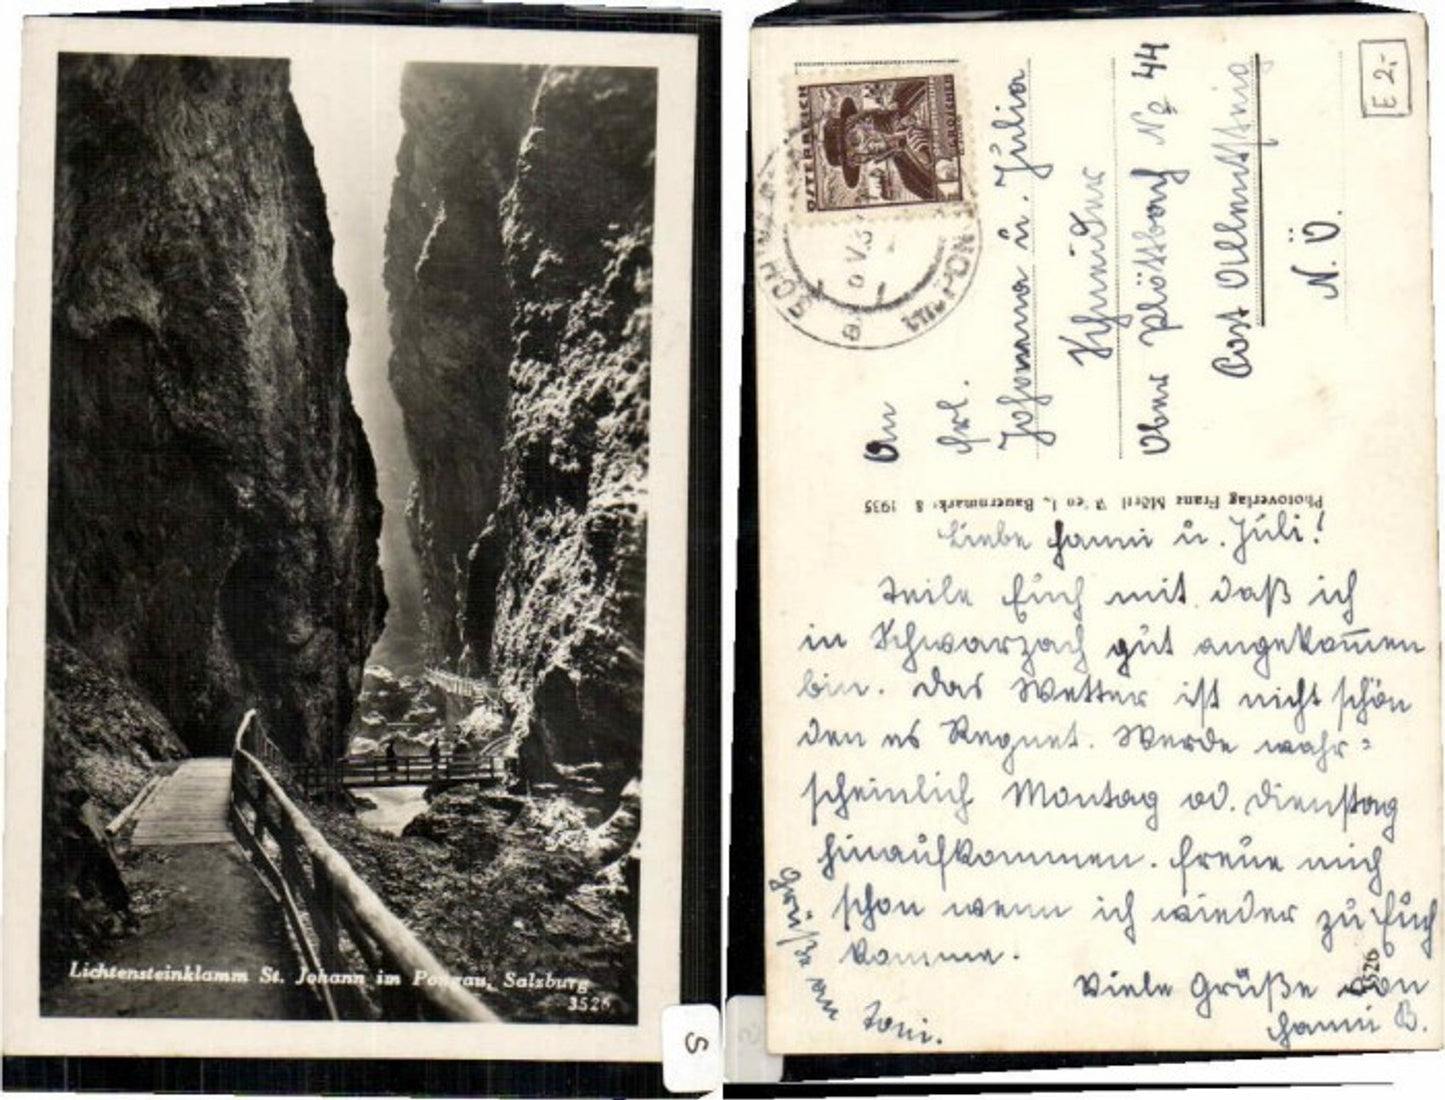 Lichtensteinklamm St. Johann im Pongau, Salzburg
3526
S
E 2,-
ÖSTERREICH
GROSCHEN
An
Frl.
Johanna u. Julia
Schneider
Ober Plöttbach № 44
Post Ollentstein
N. Ö.
Photoverlag Franz Mörtl Wien I., Bauernmarkt 8 1935
Liebe Hanni u. Juli!
Teile Euch mit daß ich
in Schwarzach gut angekom̅en
bin. Das Wetter ist nicht schön
den es Regnet. Werde wahr=
scheinlich Montag od. Dienstag
hinaufkommen. Freue mich
schon wenn ich wieder zu Euch
komme.
Viele Grüße von
Hanni B.
Grüße an
Toni.
3526